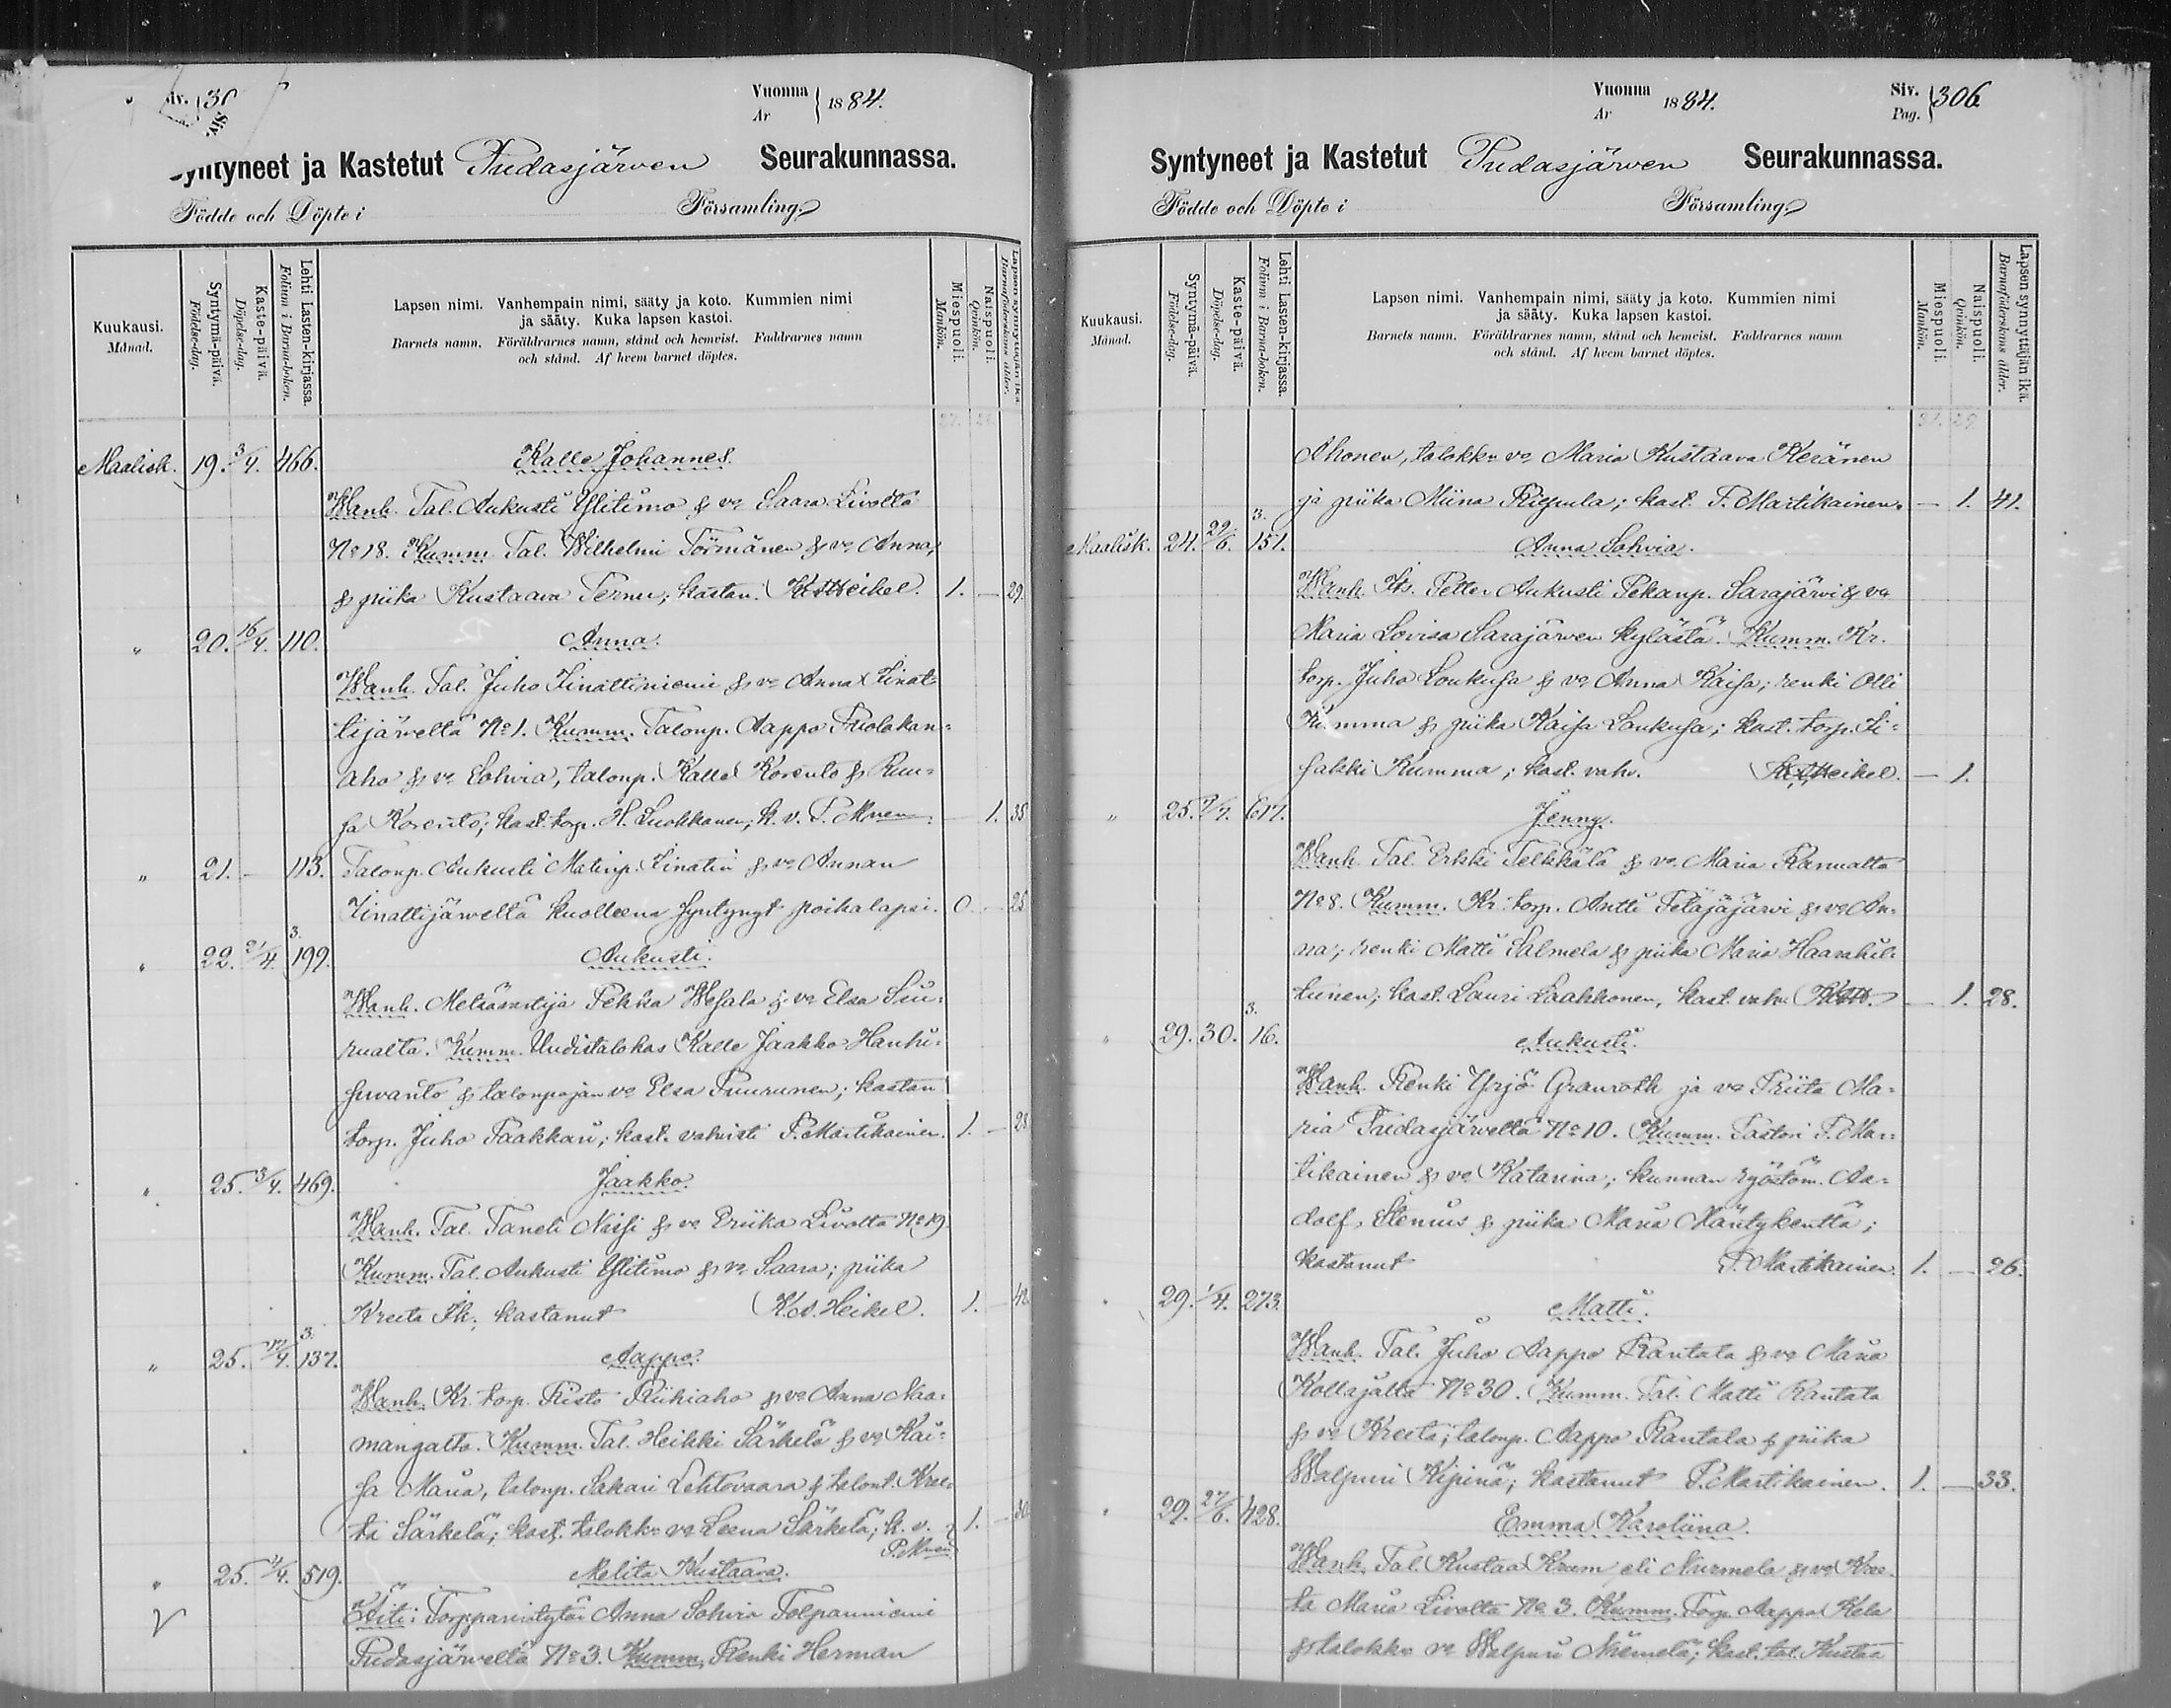 Siv. 30
Vuonna
År } 1884.
Syntyneet ja Kastetut Pudasjärven Seurakunnassa.
Födde och Döpte i Församling.
Kuukausi.
Månad.
Syntymä-päivä.
Födelse-dag.
Kaste-päivä.
Döpelse-dag.
Lehti Lasten-kirjassa.
Folium i Barna-boken.
Lapsen nimi. Vanhempain nimi, sääty ja koto. Kummien nimi
ja sääty. Kuka lapsen kastoi.
Barnets namn. Föräldrarnes namn, stånd och hemvist. Faddrarnes namn
och stånd. Af hvem barnet döptes.
Miespuoli.
Mankön.
Naispuoli.
Qvinkön.
Lapsen synnyttäjän ikä.
Barnaföderskans ålder.
Maalisk. 19. 3/4. 466. Kalle Johannes.
Wanh. Tal. Aukusti Ylitimo & vo Saara Livolta
No 18. Kumm. Tal. Wilhelmi Törmänen & vo Anna,
& piika Kustaava Ternu; kastan. K.A. Heikel. 1. — 29.
" 20. 16/4. 110. Anna.
Wanh. Tal. Juho Iinattiniemi & vo Anna Iinat-
tijärveltä No 1. Kumm. Talonp. Aappo Puolakan-
aho & vo Sohvia, talonp. Kalle Korento & Ruu-
sa Korento; kast. torp. H. Luokkanen; k. v. P. M—nen. — 1. 38
" 21. — 113. Talonp. Aukusti Matinp. Iinatin & vo Annan
Iinattijärveltä kuolleena syntynyt poikalapsi. 0 — 25
" 22. 21/4. 3. 199. Aukusti.
Wanh. Metsävartija Pekka Wesala & vo Elsa Siu-
rualta. Kumm. Uudistalokas Kalle Jaakko Hanhi-
suvanto & talonpojan vo Elsa Puurunen; kastan
torp. Juho Taakkari; kast. vahvisti P. Martikainen. 1. — 28
" 25. 3/4. 469. Jaakko.
Wanh. Tal. Taneli Niisi & vo Eriika Livolta No 19
Kumm. Tal. Aukusti Ylitimo & vo Saara; piika
Kreeta Ik; kastanut K.A. Heikel. 1. — 42
" 25. 4. 3. 137. Aappo.
Wanh. Kr. torp. Risto Riihiaho & vo Anna Naa-
mangalta. Kumm. Tal. Heikki Särkelä & vo Kai-
sa Maria, talonp. Sakari Lehtovaara & talont. Kree-
ta Särkelä; kast. talokk. vo Leena Särkelä; k. v. 1. — 30
P. M—nen
" 25. 1/4. 519. Melita Kustaava.
V Äiti: Torpparintytär Anna Sohvia Tolpanniemi
Pudasjärveltä No 3. Kumm. Renki Herman
Vuonna
År 1884.
Siv.
Pag. } 306
Syntyneet ja Kastetut Pudasjärven Seurakunnassa.
Födde och Döpte i Församling.
Kuukausi.
Månad.
Syntymä-päivä.
Födelse-dag.
Kaste-päivä.
Döpelse-dag.
Lehti Lasten-kirjassa.
Folium i Barna-boken.
Lapsen nimi. Vanhempain nimi, sääty ja koto. Kummien nimi
ja sääty. Kuka lapsen kastoi.
Barnets namn. Föräldrarnes namn, stånd och hemvist. Faddrarnes namn
och stånd. Af hvem barnet döptes.
Miespuoli.
Mankön.
Naispuoli.
Qvinkön.
Lapsen synnyttäjän ikä.
Barnaföderskans ålder.
Ahonen, talokk. vo Maria Kustaava Keränen
ja piika Miina Riepula; kast. P. Martikainen. — 1. 41.
Maalisk. 24. 22/6. 3. 151. Anna Sohvia.
Wanh. Its. Petter Aukusti Pekanp. Sarajärvi & vo
Maria Lovisa Sarajärven kylästä. Kumm. Kr.
torp. Juho Loukusa & vo Anna Kaisa; renki Olli
Kumma & piika Kaisa Loukusa; kast. torp. Ii-
sakki Kumma; kast. vahv. K.A. Heikel. — 1.
" 25. 7/4. 617. Jenny.
Wanh. Tal. Erkki Telkkälä & vo Maria Ranualta
No 8. Kumm. Kr. torp. Antti Petäjäjärvi & vo An-
na; renki Matti Salmela & piika Maria Haarahil-
tunen; kast. Lauri Laakkonen, kast. vahv. K.A.H. — 1. 28.
" 29. 30. 3. 16. Aukusti.
Wanh. Renki Yrjö Granroth ja vo Priita Ma-
ria Pudasjärveltä No 10. Kumm. Pastori P. Mar-
tikainen & vo Katarina; kunnan ryöstöm. Aa-
dolf Stenius & piika Maria Mäntykenttä;
kastanut P. Martikainen. 1. — 26.
" 29. 1/4. 273. Matti.
Wanh. Tal. Juho Aappo Rantala & vo Maria
Kollajalta No 30. Kumm. Tal. Matti Rantala
& vo Kreeta; talonp. Aappo Rantala & piika
Walpuri Kipinä; kastanut P. Martikainen. 1. — 33.
" 29. 27/6. 428. Emma Karoliina.
Wanh. Tal. Kustaa Krum eli Nurmela & vo Kree-
ta Maria Livolta No 3. Kumm. Torp. Aappo Kela
& talokk. vo Walpuri Niemelä; kast. tal. Kustaa